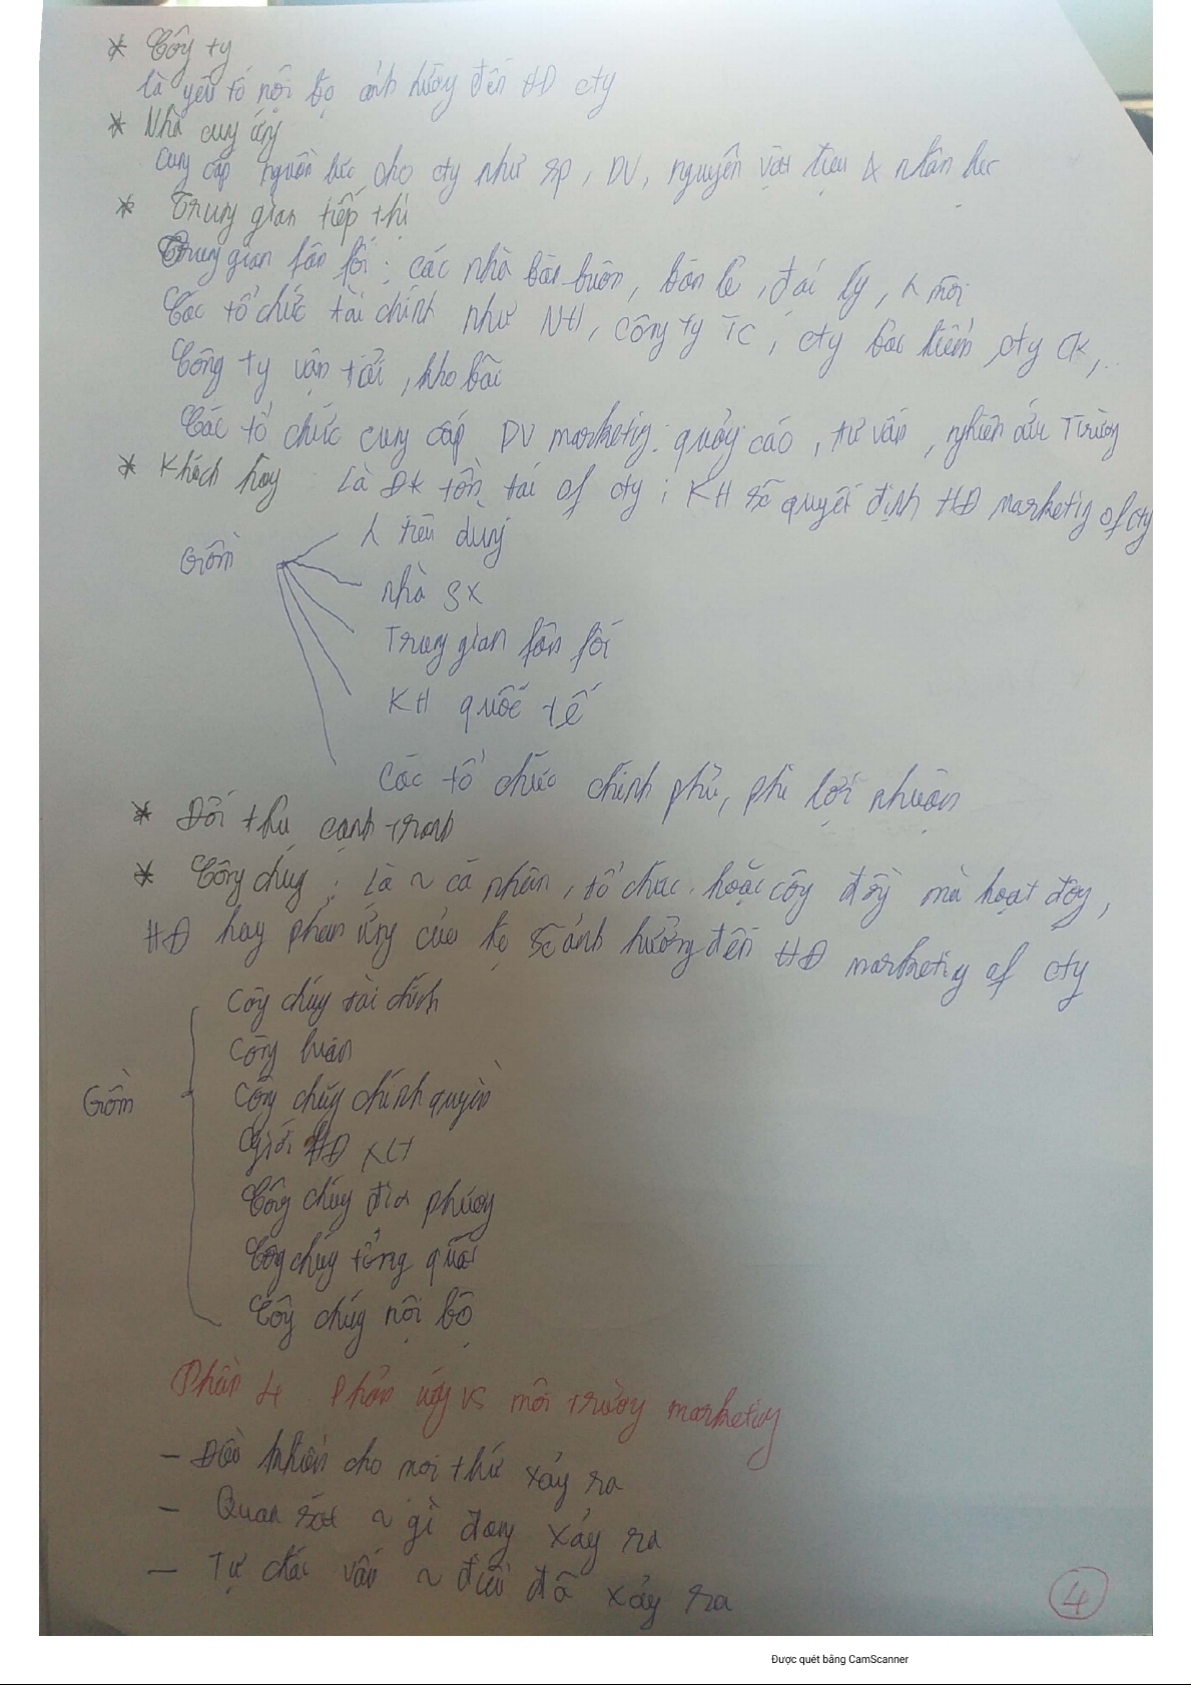 * Công ty
là yếu tố nội bộ ảnh hưởng đến HĐ cty
* Nhà cung ứng
Cung cấp nguồn lực cho cty như sp, DV, nguyên vật liệu & nhân lực
* Trung gian tiếp thị
Trung gian fân fối: các nhà bán buôn, bán lẻ, đại lý, môi
Các tổ chức tài chính như NH, công ty TC, cty bảo hiểm, cty CK,...
Công ty vận tải, kho bãi
Các tổ chức cung cấp DV marketing: quảng cáo, tư vấn, nghiên cứu Trường
* Khách hàng: Là ĐK tồn tại of cty; KH sẽ quyết định HĐ marketing of cty
Gồm
tiêu dùng
nhà SX
Trung gian fân fối
KH quốc tế
Các tổ chức chính phủ, phi lợi nhuận
* Đối thủ cạnh tranh
* Công chúng: Là ~ cá nhân, tổ chức hoặc cộng đồng mà hoạt động,
HĐ hay phản ứng của họ sẽ ảnh hưởng đến HĐ marketing of cty
Gồm
Công chúng tài chính
Công luận
Công chúng chính quyền
Giới HĐ XH
Công chúng địa phương
Công chúng tổng quát
Công chúng nội bộ
Phần 4. Phản ứng vs môi trường marketing
- Điều khiển cho mọi thứ xảy ra
- Quan sát ~ gì đang xảy ra
- Tự chất vấn ~ điều đã xảy ra
4
Được quét bằng CamScanner